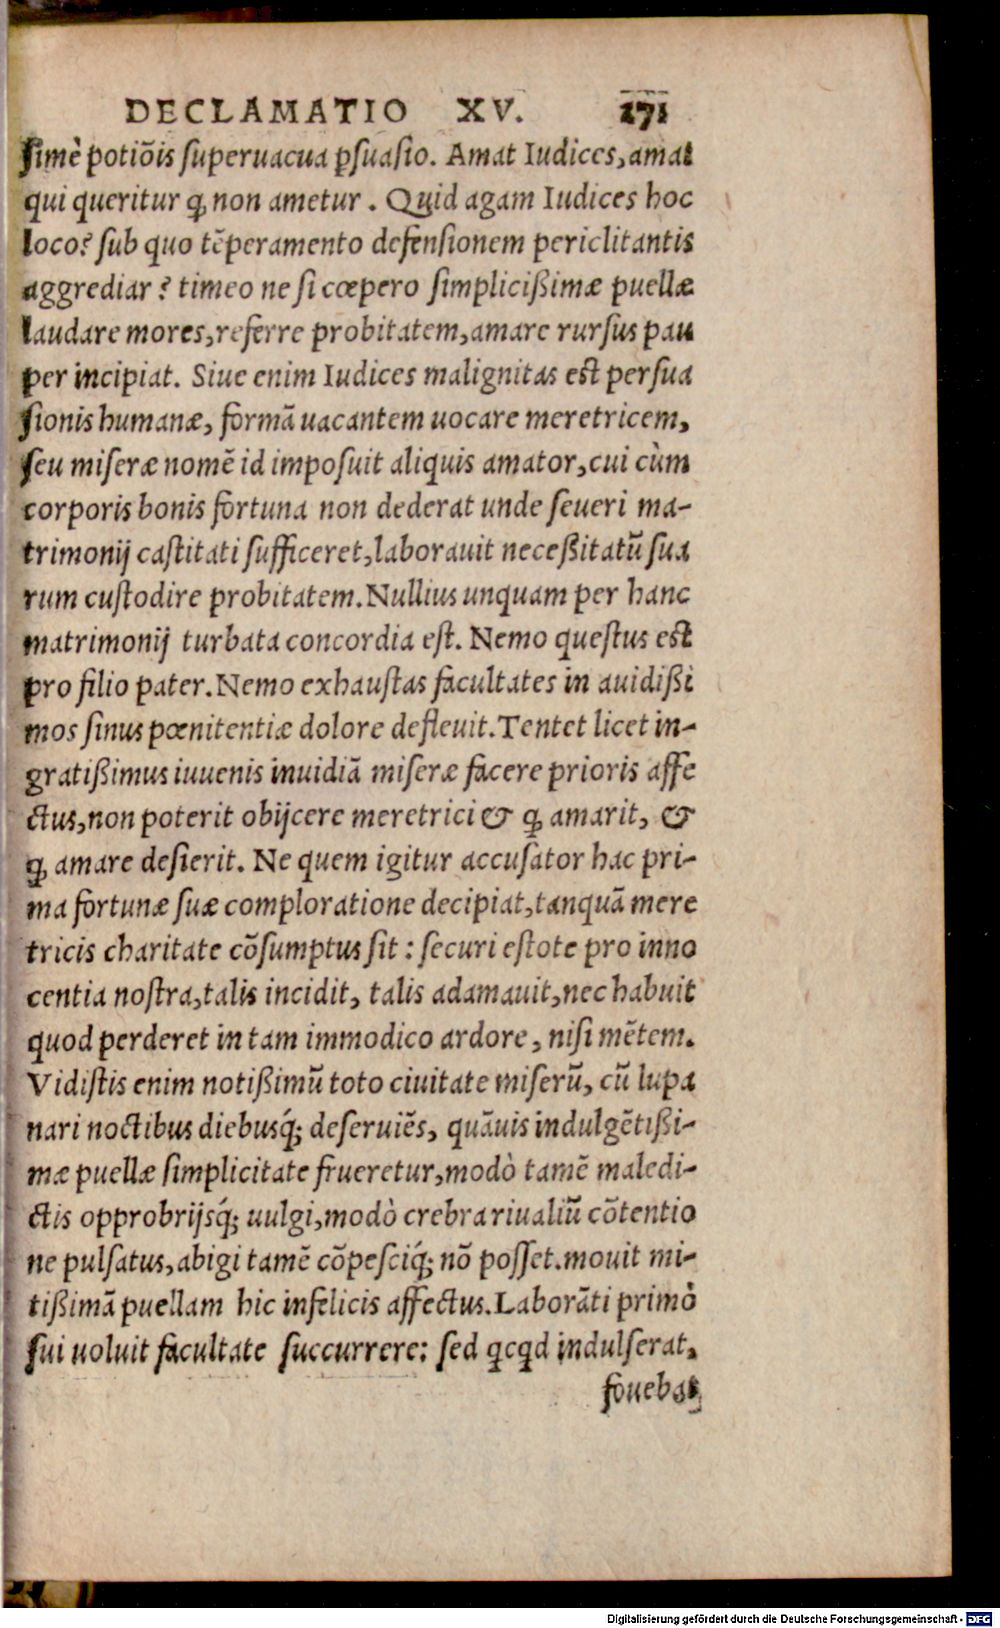 DECLAMATIO XV. 171
simè potiōis superuacua p̱suasio. Amat Iudices, amat
qui queritur ꝙ non ametur. Quid agam Iudices hoc
loco? sub quo tēperamento defensionem periclitantis
aggrediar? timeo ne si cœpero simplicißimæ puellæ
laudare mores, referre probitatem, amare rursus pau
per incipiat. Siue enim Iudices malignitas est persua
sionis humanæ, formā uacantem uocare meretricem,
seu miseræ nomē id imposuit aliquis amator, cui cùm
corporis bonis fortuna non dederat unde seueri ma-
trimonij castitati sufficeret, laborauit neceßitatū sua
rum custodire probitatem. Nullius unquam per hanc
matrimonij turbata concordia est. Nemo questus est
pro filio pater. Nemo exhaustas facultates in auidißi
mos sinus pœnitentiæ dolore defleuit. Tentet licet in-
gratißimus iuuenis inuidiā miseræ facere prioris affe
ctus, non poterit obijcere meretrici & ꝙ amarit, &
ꝙ amare desierit. Ne quem igitur accusator hac pri-
ma fortunæ suæ comploratione decipiat, tanquā mere
tricis charitate cōsumptus sit: securi estote pro inno
centia nostra, talis incidit, talis adamauit, nec habuit
quod perderet in tam immodico ardore, nisi mētem.
Vidistis enim notißimū toto ciuitate miserū, cū lupa
nari noctibus diebusq́; deseruiēs, quāuis indulgētißi-
mæ puellæ simplicitate frueretur, modò tamē maledi-
ctis opprobrijsq́; uulgi, modò crebra riualiū cōtentio
ne pulsatus, abigi tamē cōpesciq́; nō posset. mouit mi-
tißimā puellam hic infelicis affectus. Laborāti primò
sui uoluit facultate succurrere: sed qcqd indulserat,
fouebat
Digitalisierung gefördert durch die Deutsche Forschungsgemeinschaft - DFG